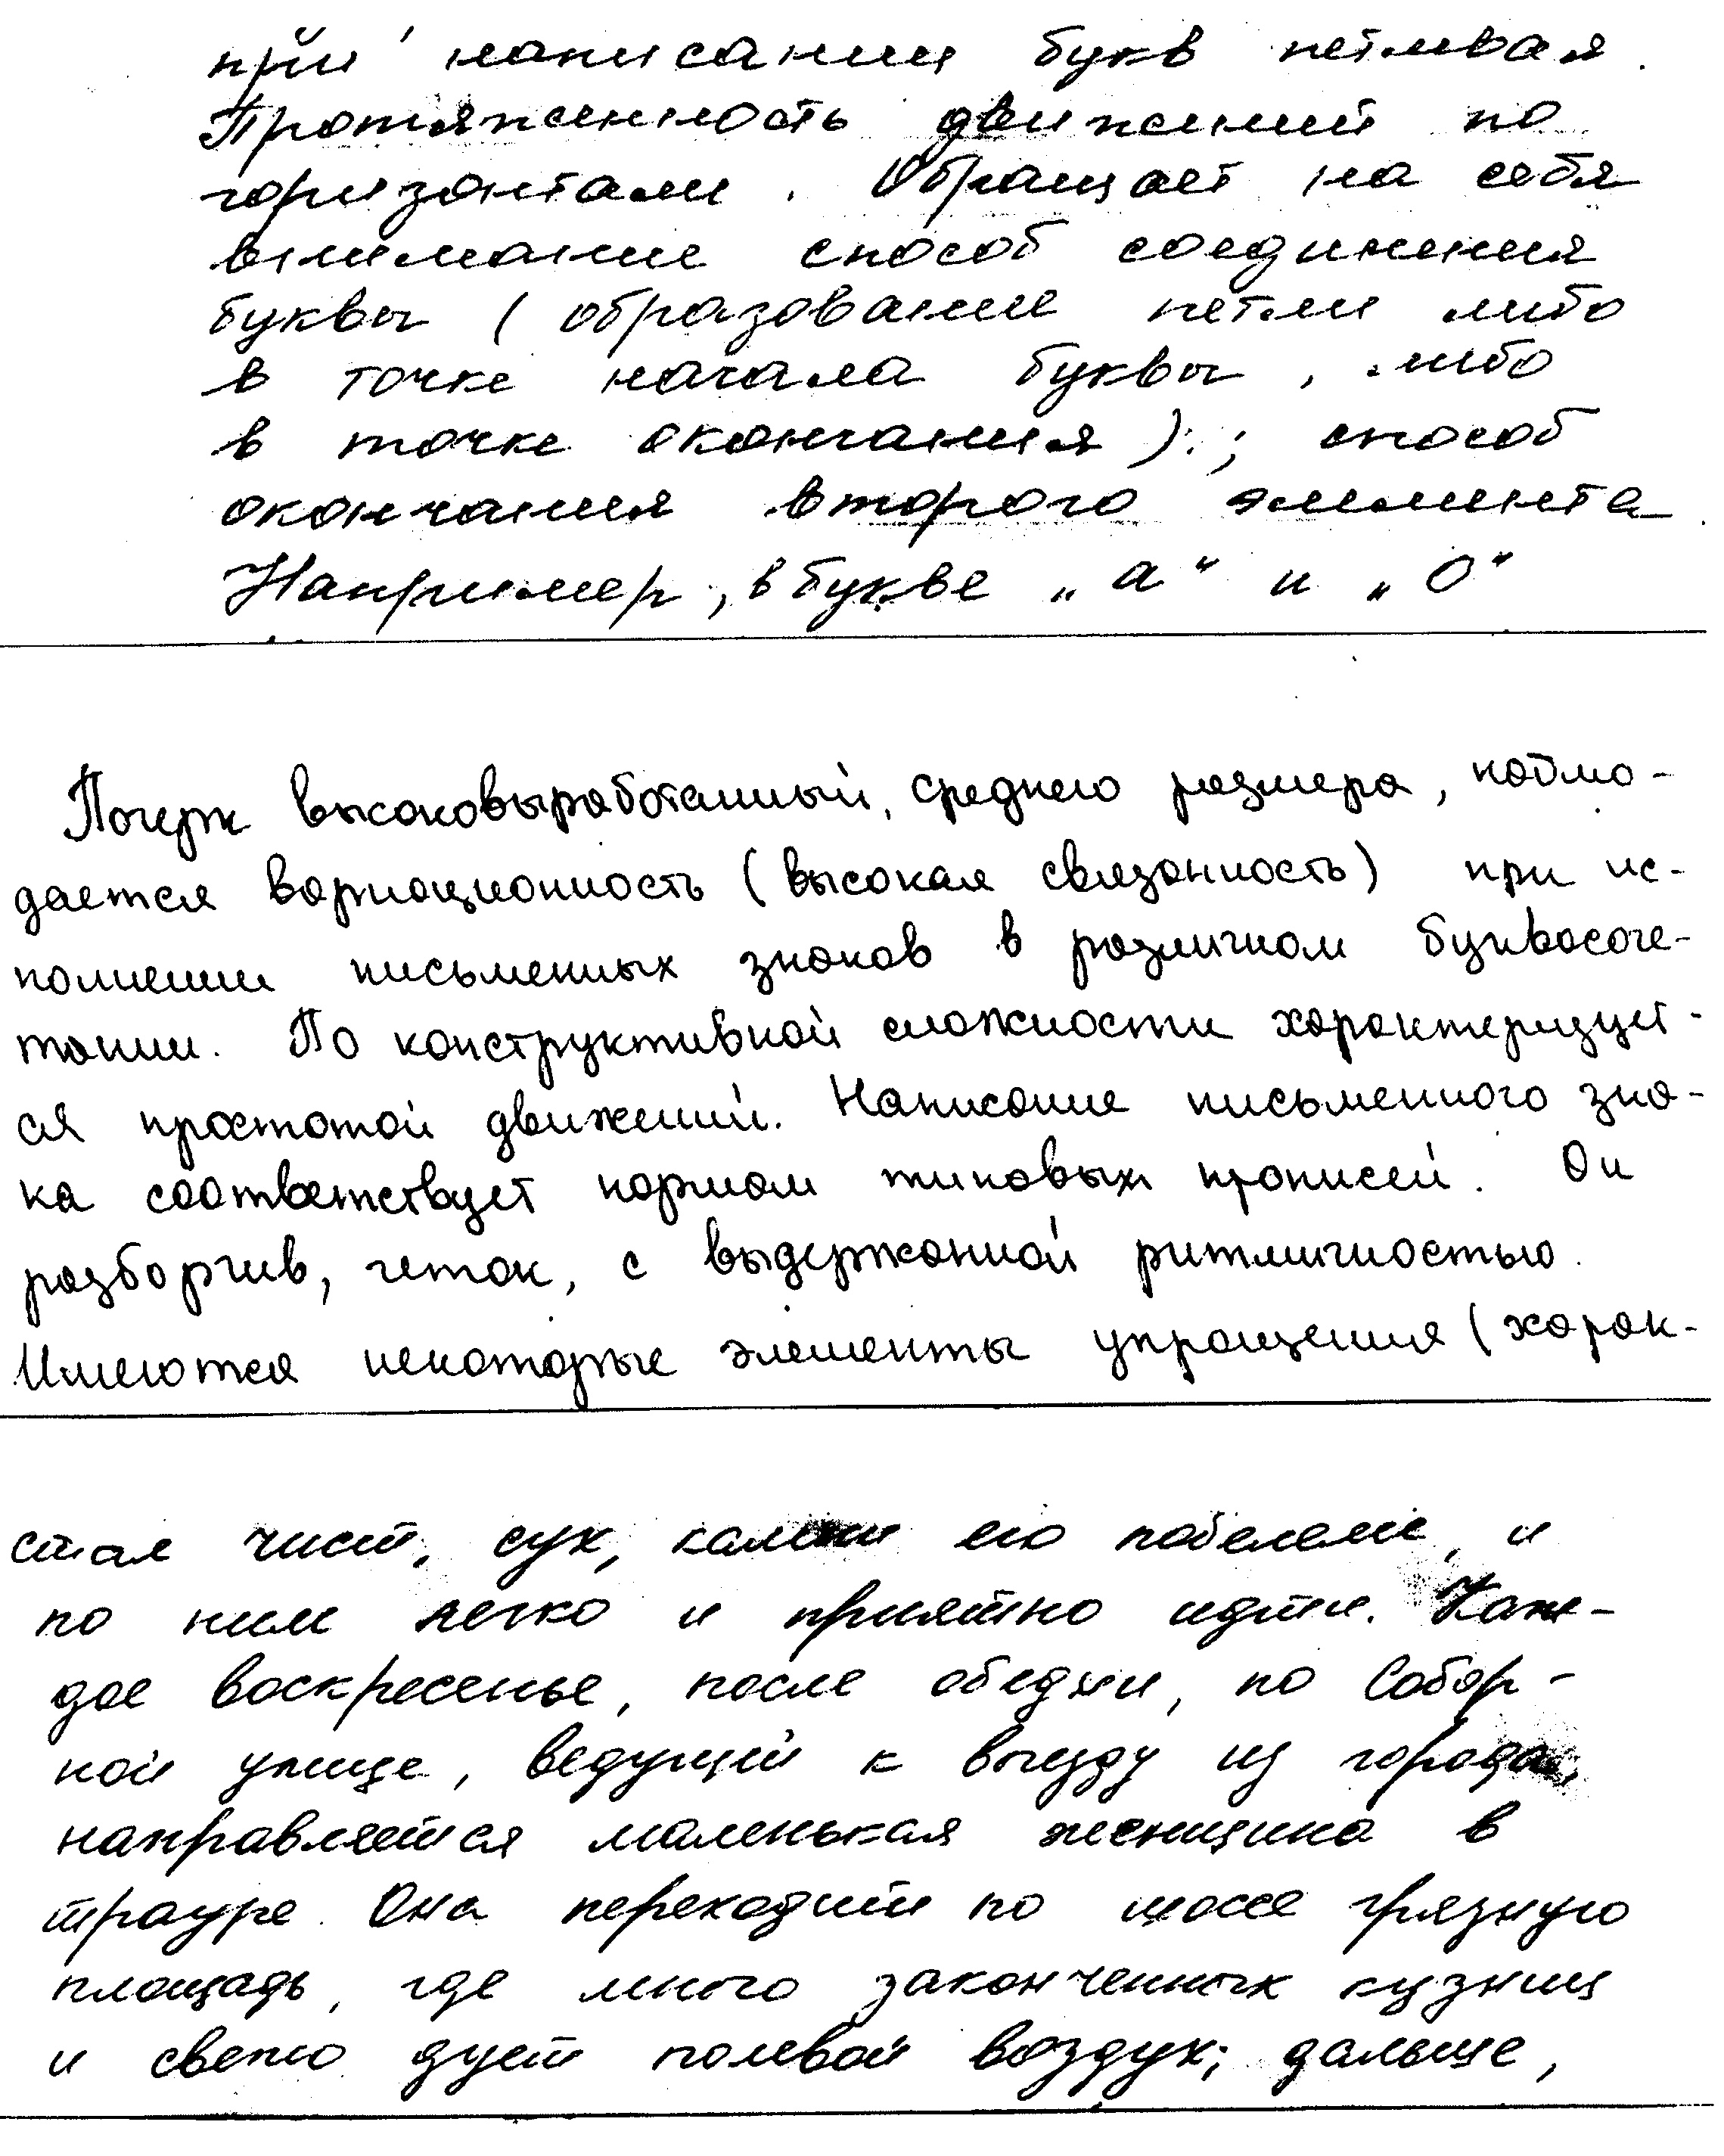 при написании букв петлевая.
Протяженность движений по
горизонтали. Обращает на себя
внимание способ соединения
буквы (образование петли либо
в точке начала буквы, либо
в точке окончания); способ
окончания второго элемента.
Например, в букве „а“ и „О“
Почерк высоковыработанный, среднего размера, наблю-
дается вариационность (высокая связанность) при ис-
полнении письменных знаков в различном буквосоче-
тании. По конструктивной сложности характеризует-
ся простотой движений. Написание письменного зна-
ка соответствует нормам типовых прописей. Он
разборчив, четок, с выдержанной ритмичностью.
Имеются некоторые элементы упрощения (харак-
стал чист, сух, камни его побелели, и
по ним легко и приятно идти. Каж-
дое воскресенье, после обедни, по Собор-
ной улице, ведущей к выезду из города,
направляется маленькая женщина в
трауре. Она переходит по шоссе грязную
площадь, где много законченных кузниц
и свежо дует полевой воздух; дальше,